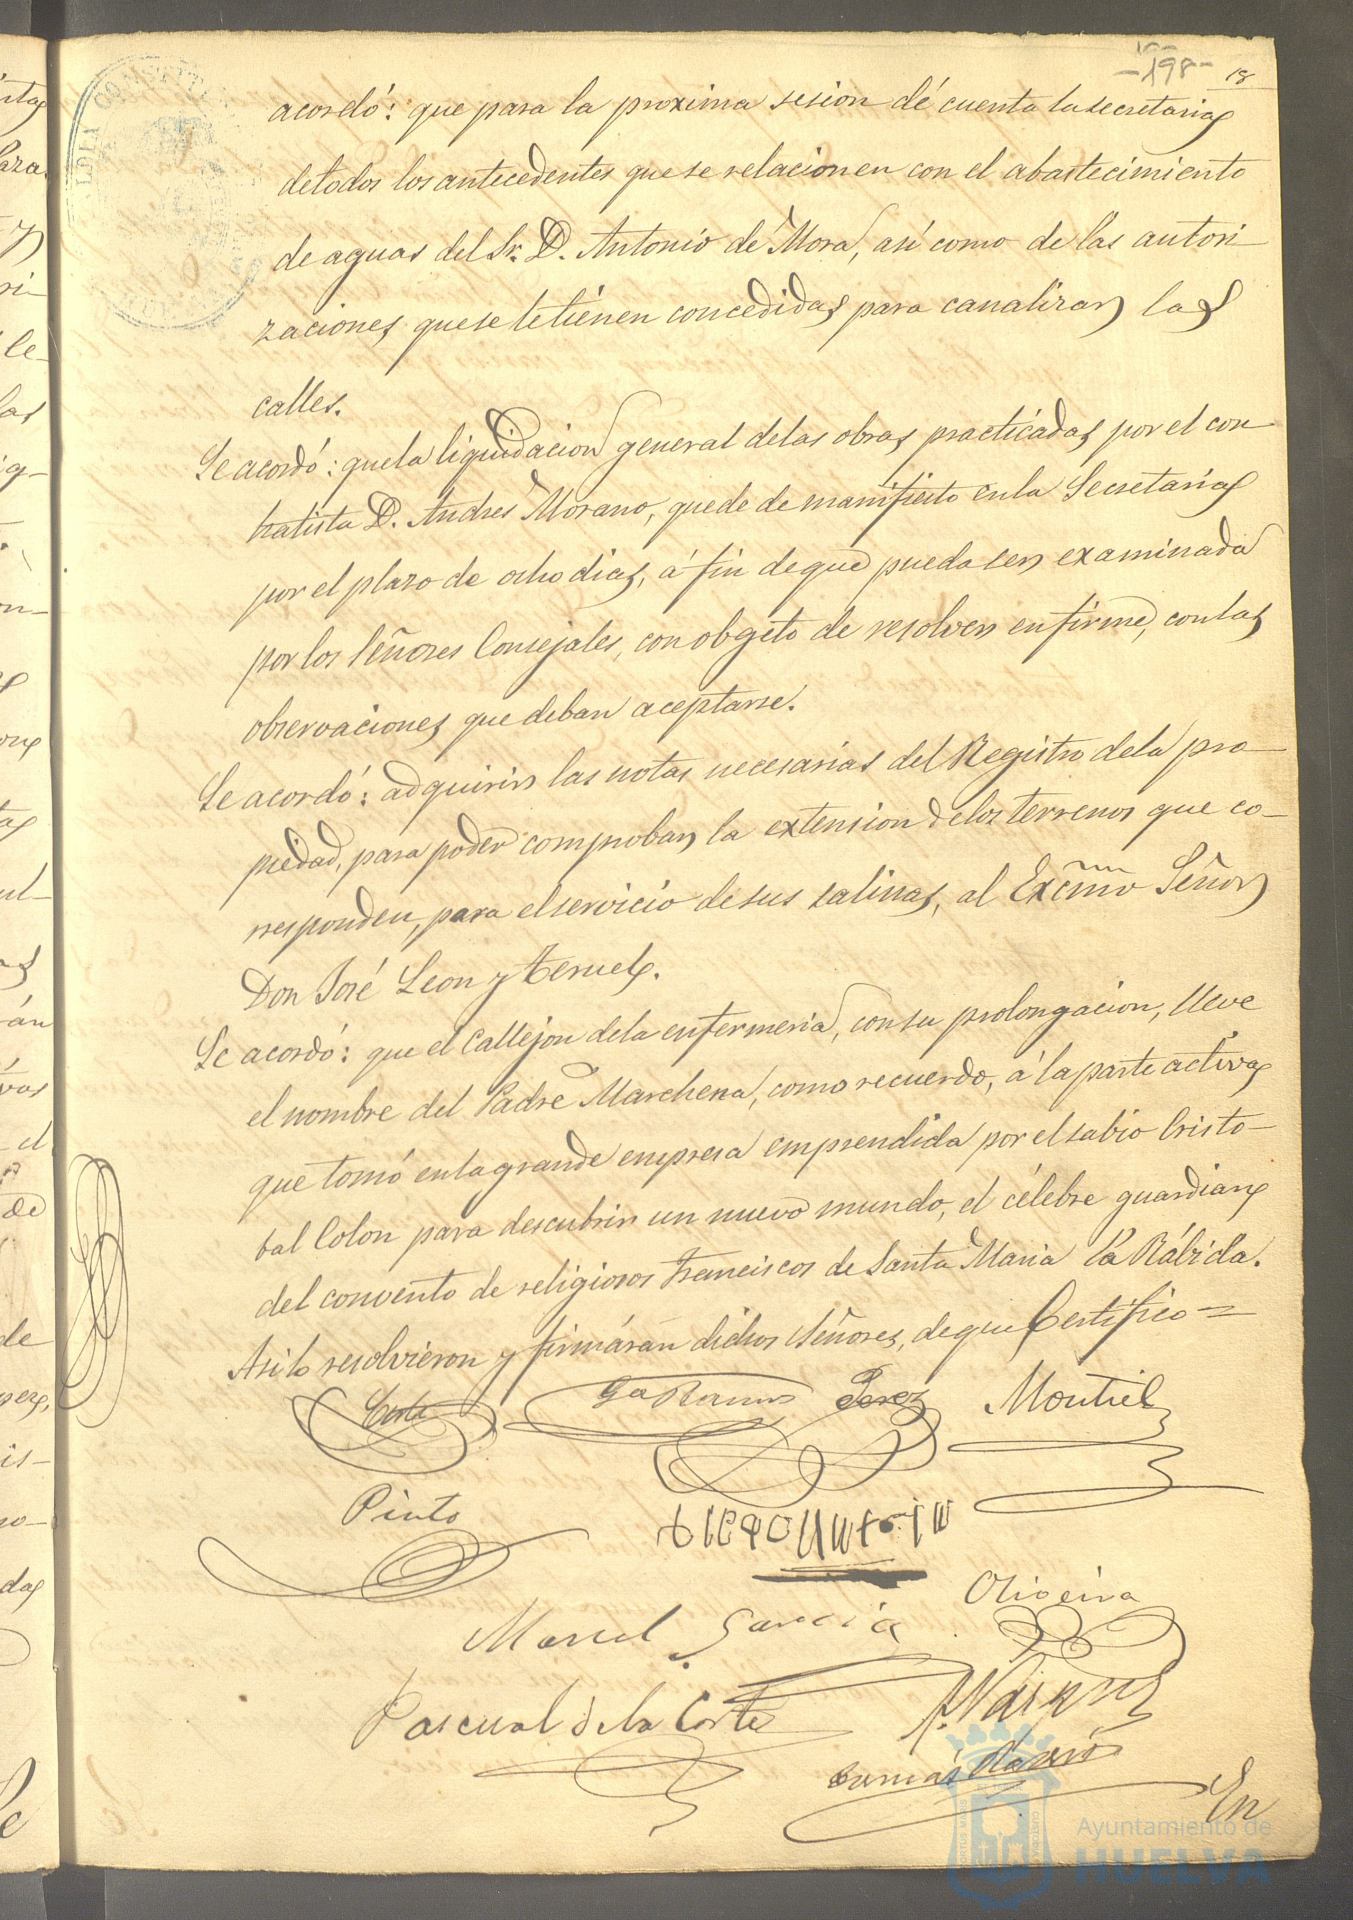 -198- 18
acordó: que para la proxima sesion dé cuenta la secretaria
de todos los antecedentes que se relacionen con el abastecimiento
de aguas del Sr. D. Antonio de Mora, así como de las autori-
zaciones que se le tienen concedidas para canalizar las
calles.
Se acordó: que la liquidacion general de las obras practicadas por el con-
tratista D. Andrés Morano, quede de manifiesto en la Secretaria
por el plazo de ocho dias, á fin de que pueda ser examinada
por los Señores Consejales, con obgeto de resolver en firme, con las
observaciones que deban aceptarse.
Se acordó: adquirir las notas necesarias del Registro de la pro-
piedad, para poder comprobar la extension de los terrenos que co-
rresponden, para el servicio de sus salinas, al Excmo Señor
Don José Leon y Teruel.
Se acordó: que el Callejon de la enfermeria, con su prolongacion, lleve
el nombre del Padre Marchena, como recuerdo, á la parte activa
que tomó en la grande empresa emprendida por el sabio Cristo-
bal Colon para descubrir un nuevo mundo, el célebre guardian
del convento de religiosos Franciscos de Santa Maria la Rábida.
Asi lo resolvieron y firmáran dichos Señores, de que Certifico=
Corte Ga Ramos Perez Montiel
Pinto
Oliveira
Manuel Garcia
Pascual de la Corte A. Vazquez
Tomás
En
Ayuntamiento de
HUELVA